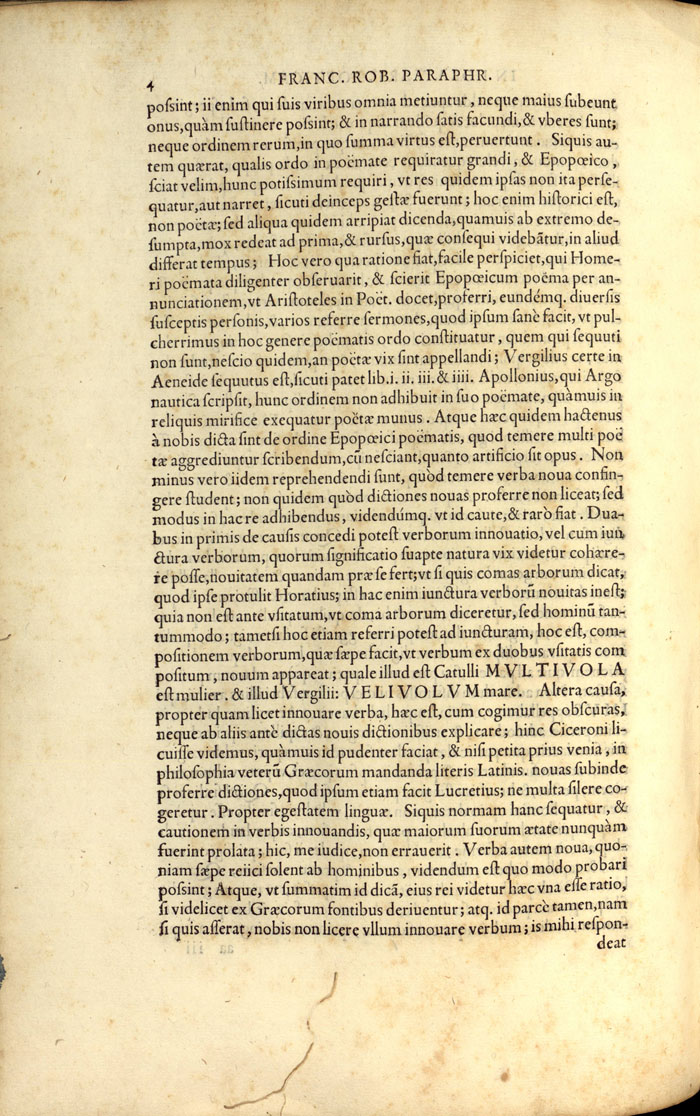 4
FRANC. ROB. PARAPHR.
possint; ii enim qui suis viribus omnia metiuntur, neque maius subeunt
onus,quàm sustinere possint; & in narrando satis facundi,& vberes sunt;
neque ordinem rerum,in quo summa virtus est,peruertunt. Siquis au-
tem quærat, qualis ordo in poëmate requiratur grandi, & Epopœico,
sciat velim,hunc potissimum requiri, vt res quidem ipsas non ita perse-
quatur,aut narret, sicuti deinceps gestæ fuerunt; hoc enim historici est,
non poëtæ; sed aliqua quidem arripiat dicenda,quamuis ab extremo de-
sumpta,mox redeat ad prima,& rursus,quæ consequi videbãtur,in aliud
differat tempus; Hoc vero qua ratione fiat,facile perspiciet,qui Home-
ri poëmata diligenter obseruarit, & scierit Epopœicum poëma per an-
nunciationem,vt Aristoteles in Poët. docet,proferri, eundémq. diuersis
susceptis personis,varios referre sermones,quod ipsum sanè facit, vt pul-
cherrimus in hoc genere poëmatis ordo constituatur, quem qui sequuti
non sunt,nescio quidem,an poëtæ vix sint appellandi; Vergilius certe in
Aeneide sequutus est,sicuti patet lib.i. ii. iii.& iiii. Apollonius,qui Argo
nautica scripsit, hunc ordinem non adhibuit in suo poëmate, quàmuis in
reliquis mirifice exequatur poëtæ munus. Atque hæc quidem hactenus
à nobis dicta sint de ordine Epopœici poëmatis, quod temere multi poë
tæ aggrediuntur scribendum,cũ nesciant,quanto artificio sit opus. Non
minus vero iidem reprehendendi sunt, quòd temere verba noua confin-
gere student; non quidem quòd dictiones nouas proferre non liceat; sed
modus in hac re adhibendus, videndúmq. vt id caute,& rarò fiat. Dua-
bus in primis de causis concedi potest verborum innouatio, vel cum iun
ctura verborum, quorum significatio suapte natura vix videtur cohære-
re posse,nouitatem quandam præ se fert;vt si quis comas arborum dicat,
quod ipse protulit Horatius; in hac enim iunctura verborũ nouitas inest;
quia non est ante vsitatum,vt coma arborum diceretur, sed hominũ tan-
tummodo; tametsi hoc etiam referri potest ad iuncturam, hoc est, com-
positionem verborum,quæ sæpe facit,vt verbum ex duobus vsitatis com
positum, nouum appareat; quale illud est Catulli MVLTIVOLA
est mulier. & illud Vergilii: VELIVOLVM mare. Altera causa,
propter quam licet innouare verba, hæc est, cum cogimur res obscuras,
neque ab aliis antè dictas nouis dictionibus explicare; hinc Ciceroni li-
cuisse videmus, quàmuis id pudenter faciat, & nisi petita prius venia, in
philosophia veterũ Græcorum mandanda literis Latinis. nouas subinde
proferre dictiones,quod ipsum etiam facit Lucretius; ne multa silere co-
geretur. Propter egestatem linguæ. Siquis normam hanc sequatur, &
cautionem in verbis innouandis, quæ maiorum suorum ætate nunquàm
fuerint prolata; hic, me iudice,non errauerit. Verba autem noua, quo-
niam sæpe reiici solent ab hominibus, videndum est quo modo probari
possint; Atque, vt summatim id dicã, eius rei videtur hæc vna esse ratio,
si videlicet ex Græcorum fontibus deriuentur; atq. id parcè tamen,nam
si quis asserat, nobis non licere vllum innouare verbum; is mihi respon-
deat